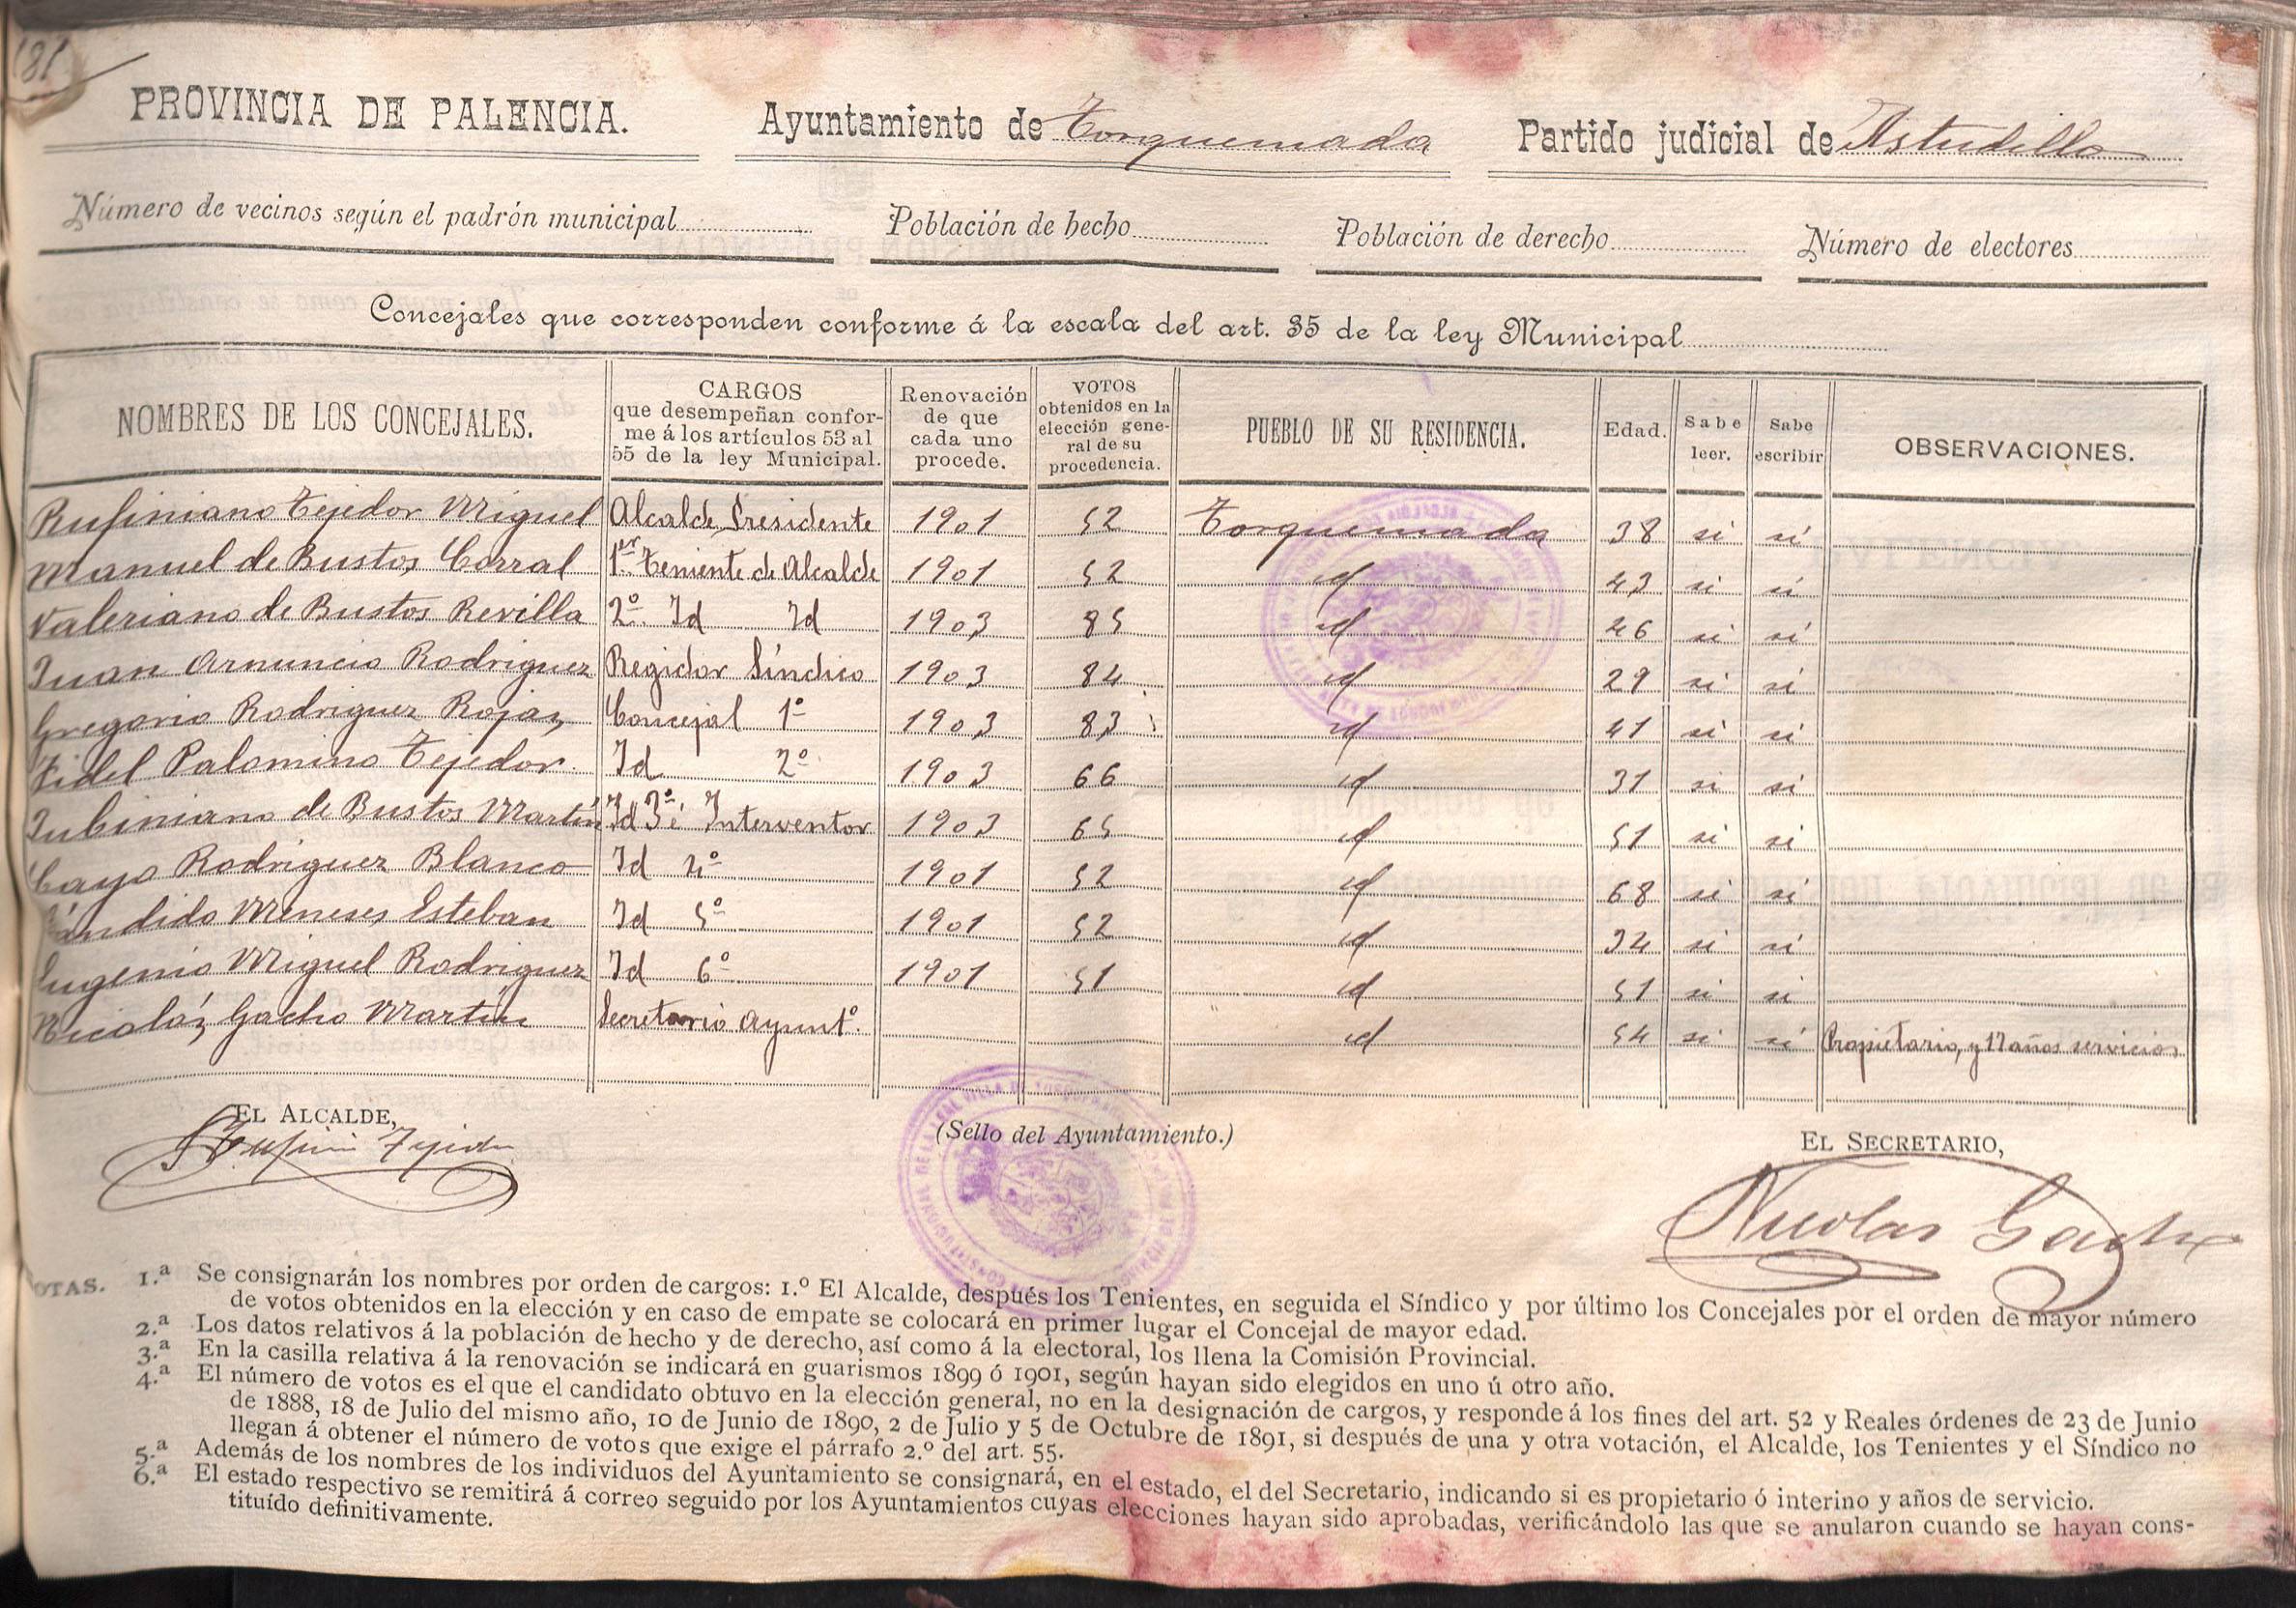 181
PROVINCIA DE PALENCIA. Ayuntamiento de Torquemada Partido judicial de Astudillo
Número de vecinos según el padrón municipal Población de hecho Población de derecho Número de electores
Concejales que corresponden conforme á la escala del art. 35 de la ley Municipal
NOMBRES DE LOS CONCEJALES. CARGOS que desempeñan conforme á los artículos 53 al 55 de la ley Municipal. Renovación de que cada uno procede. VOTOS obtenidos en la elección general de su procedencia. PUEBLO DE SU RESIDENCIA. Edad. Sabe leer. Sabe escribir OBSERVACIONES.
Rufiniano Tejedor Miguel Alcalde Presidente 1901 52 Torquemada 38 si sí
Manuel de Bustos Corral 1.er Teniente de Alcalde 1901 52 id 43 si sí
Valeriano de Bustos Revilla 2º Id Id 1903 85 id 46 si sí
Juan Arnuncio Rodriguez Regidor Síndico 1903 84 id 29 si sí
Gregorio Rodriguez Rojas Concejal 1º 1903 83 id 41 si sí
Fidel Palomino Tejedor Id 2º 1903 66 id 31 si sí
Jubiniano de Bustos Martín Id 3º é Interventor 1903 65 id 51 si si
Cayo Rodriguez Blanco Id 4º 1901 52 id 68 si sí
Cándido Meneses Esteban Id 5º 1901 52 id 34 si sí
Eugenio Miguel Rodriguez Id 6º 1901 51 id 51 si si
Nicolás Gacho Martín Secretario Ayuntº. id 54 si sí Propietario, y 17 años servicios
EL ALCALDE, (Sello del Ayuntamiento.) EL SECRETARIO,
Rufini Tejedor Nicolas Gacho
OTAS. 1.ª Se consignarán los nombres por orden de cargos: 1.º El Alcalde, despúés los Tenientes, en seguida el Síndico y por último los Concejales por el orden de mayor número
de votos obtenidos en la elección y en caso de empate se colocará en primer lugar el Concejal de mayor edad.
2.ª Los datos relativos á la población de hecho y de derecho, así como á la electoral, los llena la Comisión Provincial.
3.ª En la casilla relativa á la renovación se indicará en guarismos 1899 ó 1901, según hayan sido elegidos en uno ú otro año.
4.ª El número de votos es el que el candidato obtuvo en la elección general, no en la designación de cargos, y responde á los fines del art. 52 y Reales órdenes de 23 de Junio
de 1888, 18 de Julio del mismo año, 10 de Junio de 1890, 2 de Julio y 5 de Octubre de 1891, si después de una y otra votación, el Alcalde, los Tenientes y el Síndico no
llegan á obtener el número de votos que exige el párrafo 2.º del art. 55.
5.ª Además de los nombres de los individuos del Ayuntamiento se consignará, en el estado, el del Secretario, indicando si es propietario ó interino y años de servicio.
6.ª El estado respectivo se remitirá á correo seguido por los Ayuntamientos cuyas elecciones hayan sido aprobadas, verificándolo las que se anularon cuando se hayan cons-
tituído definitivamente.